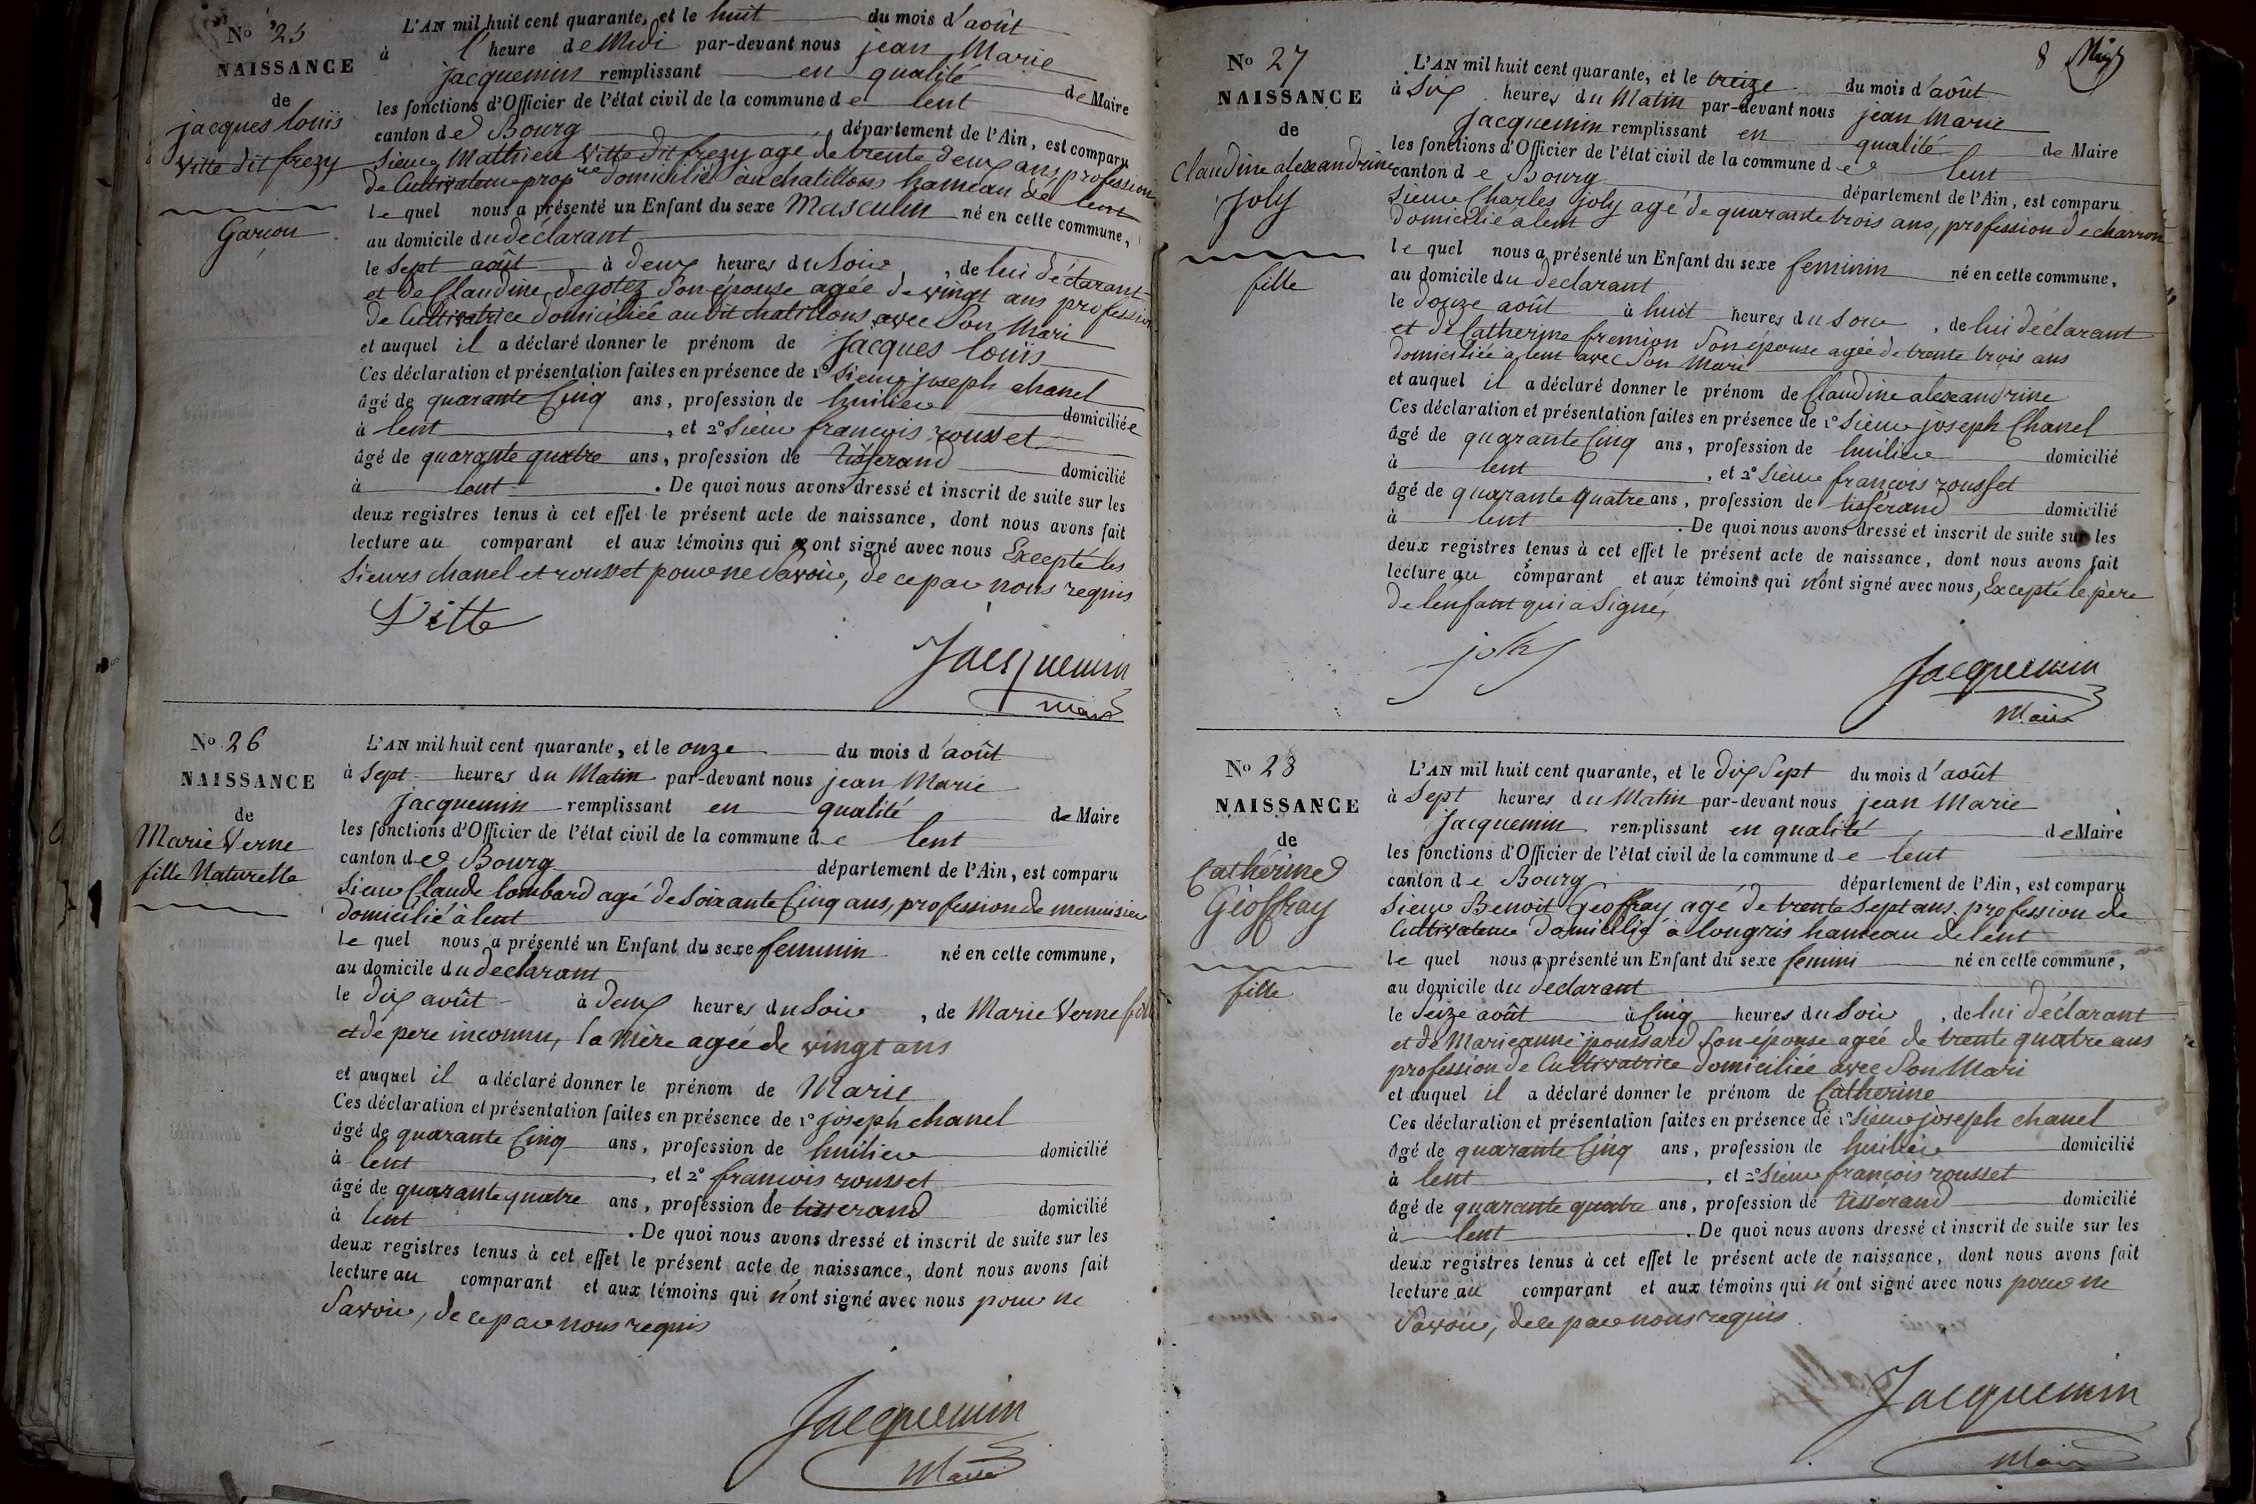 No 25
NAISSANCE
de
jacques louis
Vitte dit frezy
Garçon
L'AN mil huit cent quarante, et le huit du mois d'août
à l'heure de Midi par-devant nous jean Marie
jacquemin remplissant en qualité de Maire
les fonctions d'Officier de l'état civil de la commune de lent
canton de Bourg département de l'Ain, est comparu
Sieur Mathieu Vitte dit frezy agé de trente deux ans, profession
de Cultivateur propre domicilié au chatillons hameau de lent
le quel nous a présenté un Enfant du sexe Masculin né en cette commune,
au domicile du déclarant
le Sept août à deux heures du Soir, de lui déclarant
et de Claudine degotez Son épouse agée de vingt ans profession
de Cultivatrice domiciliée au dit chatillons avec Son Mari
et auquel il a déclaré donner le prénom de Jacques louis
Ces déclaration et présentation faites en présence de 1° Sieur joseph chanel
âgé de quarante Cinq ans, profession de huilier domicilié
à lent, et 2° Sieur françois rousset
âgé de quarante quatre ans, profession de tisserand domicilié
à lent. De quoi nous avons dressé et inscrit de suite sur les
deux registres tenus à cet effet le présent acte de naissance, dont nous avons fait
lecture au comparant et aux témoins qui ont signé avec nous Excepté les
Sieurs chanel et rousset pour ne Savoir, de ce par nous requis
Vitte
Jacquemin
Maire
No 26
NAISSANCE
de
Marie Verne
fille Naturelle
L'AN mil huit cent quarante, et le onze du mois d'août
à Sept heures du Matin par-devant nous jean Marie
jacquemin remplissant en qualité de Maire
les fonctions d'Officier de l'état civil de la commune de lent
canton de Bourg département de l'Ain, est comparu
Sieur Claude lombard agé de Soixante Cinq ans, profession de menuisier
domicilié à lent
le quel nous a présenté un Enfant du sexe feminin né en cette commune,
au domicile du declarant
le dix août à deux heures du Soir, de Marie Verne fille
et de pere inconnu, la Mère agée de vingt ans
et auquel il a déclaré donner le prénom de Marie
Ces déclaration et présentation faites en présence de 1° joseph chanel
âgé de quarante Cinq ans, profession de huilier domicilié
à lent, et 2° francois rousset
âgé de quarante quatre ans, profession de tisserand domicilié
à lent. De quoi nous avons dressé et inscrit de suite sur les
deux registres tenus à cet effet le présent acte de naissance, dont nous avons fait
lecture au comparant et aux témoins qui n'ont signé avec nous pour ne
Savoir, de ce par nous requis
Jacquemin
Maire
8
No 27
NAISSANCE
de
Claudine alexandrine
Joly
fille
L'AN mil huit cent quarante, et le treize du mois d'août
à Six heures du Matin par-devant nous jean Marie
Jacquemin remplissant en qualité de Maire
les fonctions d'Officier de l'état civil de la commune de lent
canton de Bourg département de l'Ain, est comparu
Sieur Charles joly agé de quarante trois ans, profession de charron
domicilié à lent
le quel nous a présenté un Enfant du sexe feminin né en cette commune,
au domicile du declarant
le douze août à huit heures du Soir, de lui déclarant
et de Catherine fremion Son épouse agée de trente trois ans
domiciliée à lent avec Son Mari
et auquel il a déclaré donner le prénom de Claudine alexandrine
Ces déclaration et présentation faites en présence de 1° Sieur joseph Chanel
âgé de quarante Cinq ans, profession de huilier domicilié
à lent, et 2° Sieur françois rousset
âgé de quarante quatre ans, profession de tisserand domicilié
à lent. De quoi nous avons dressé et inscrit de suite sur les
deux registres tenus à cet effet le présent acte de naissance, dont nous avons fait
lecture au comparant et aux témoins qui n'ont signé avec nous, Excepté le père
de l'enfant qui a Signé,
joly
Jacquemin
Maire
No 28
NAISSANCE
de
Catherine
Geoffray
fille
L'AN mil huit cent quarante, et le dix Sept du mois d'août
à Sept heures du Matin par-devant nous jean Marie
Jacquemin remplissant en qualité de Maire
les fonctions d'Officier de l'état civil de la commune de lent
canton de Bourg département de l'Ain, est comparu
Sieur Benoit Geoffray agé de trente Sept ans, profession de
Cultivateur domicilié à longris hameau de lent
le quel nous a présenté un Enfant du sexe femini né en cette commune,
au domicile du declarant
le Seize août à Cinq heures du Soir, de lui déclarant
et de Marieanne poussard Son épouse agée de trente quatre ans
profession de Cultivatrice domiciliée avec Son Mari
et auquel il a déclaré donner le prénom de Catherine
Ces déclaration et présentation faites en présence de 1° Sieur joseph chanel
âgé de quarante Cinq ans, profession de huilier domicilié
à lent, et 2° Sieur françois rousset
âgé de quarante quatre ans, profession de tisserand domicilié
à lent. De quoi nous avons dressé et inscrit de suite sur les
deux registres tenus à cet effet le présent acte de naissance, dont nous avons fait
lecture au comparant et aux témoins qui n'ont signé avec nous pour ne
Savoir, de ce par nous requis
Jacquemin
Maire